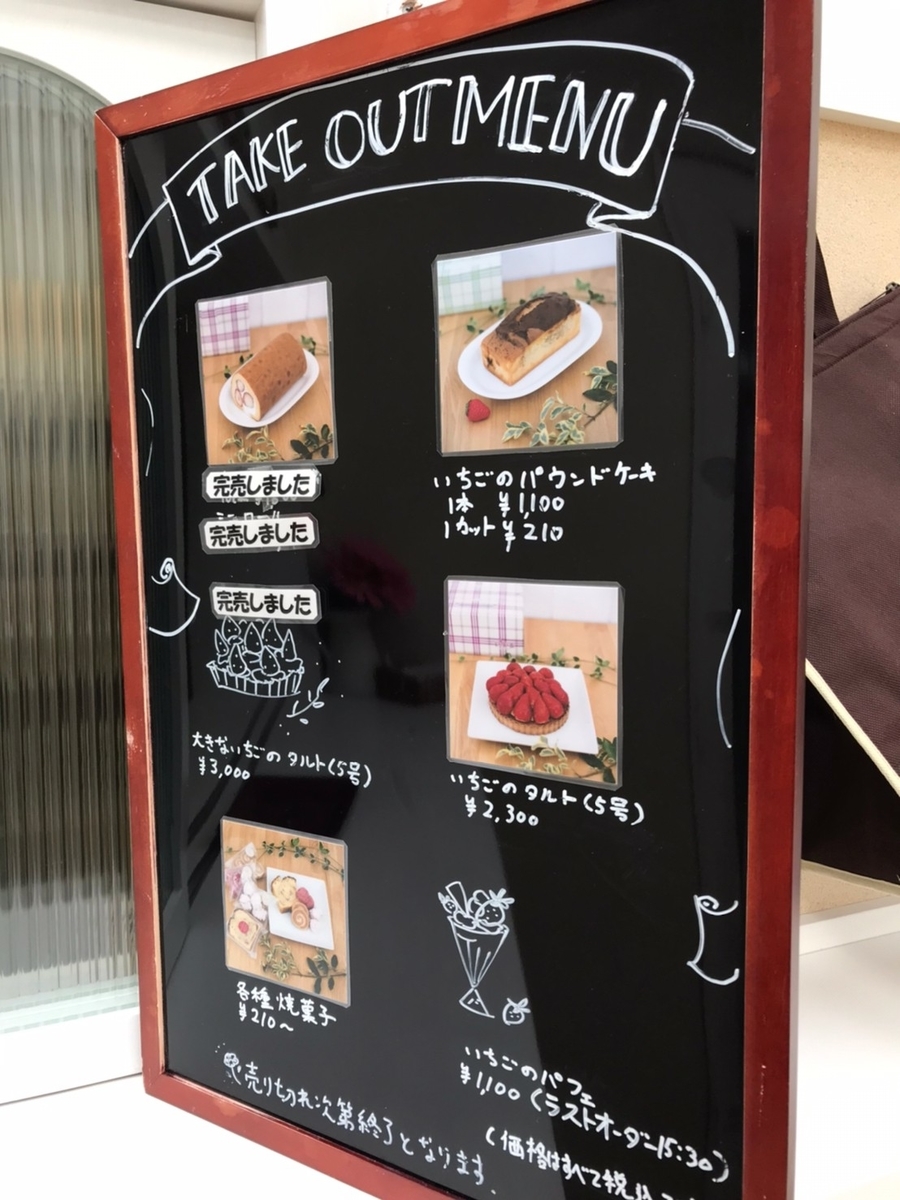 TAKE OUT MENU
完売しました
完売しました
いちごのパウンドケーキ
1本 ¥1,100
1カット ¥210
完売しました
大きないちごのタルト(5号)
¥3,000
いちごのタルト(5号)
¥2,300
各種焼菓子
¥210~
いちごのパフェ
¥1,100(ラストオーダー15:30)
売り切れ次第終了となります。
(価格はすべて税込